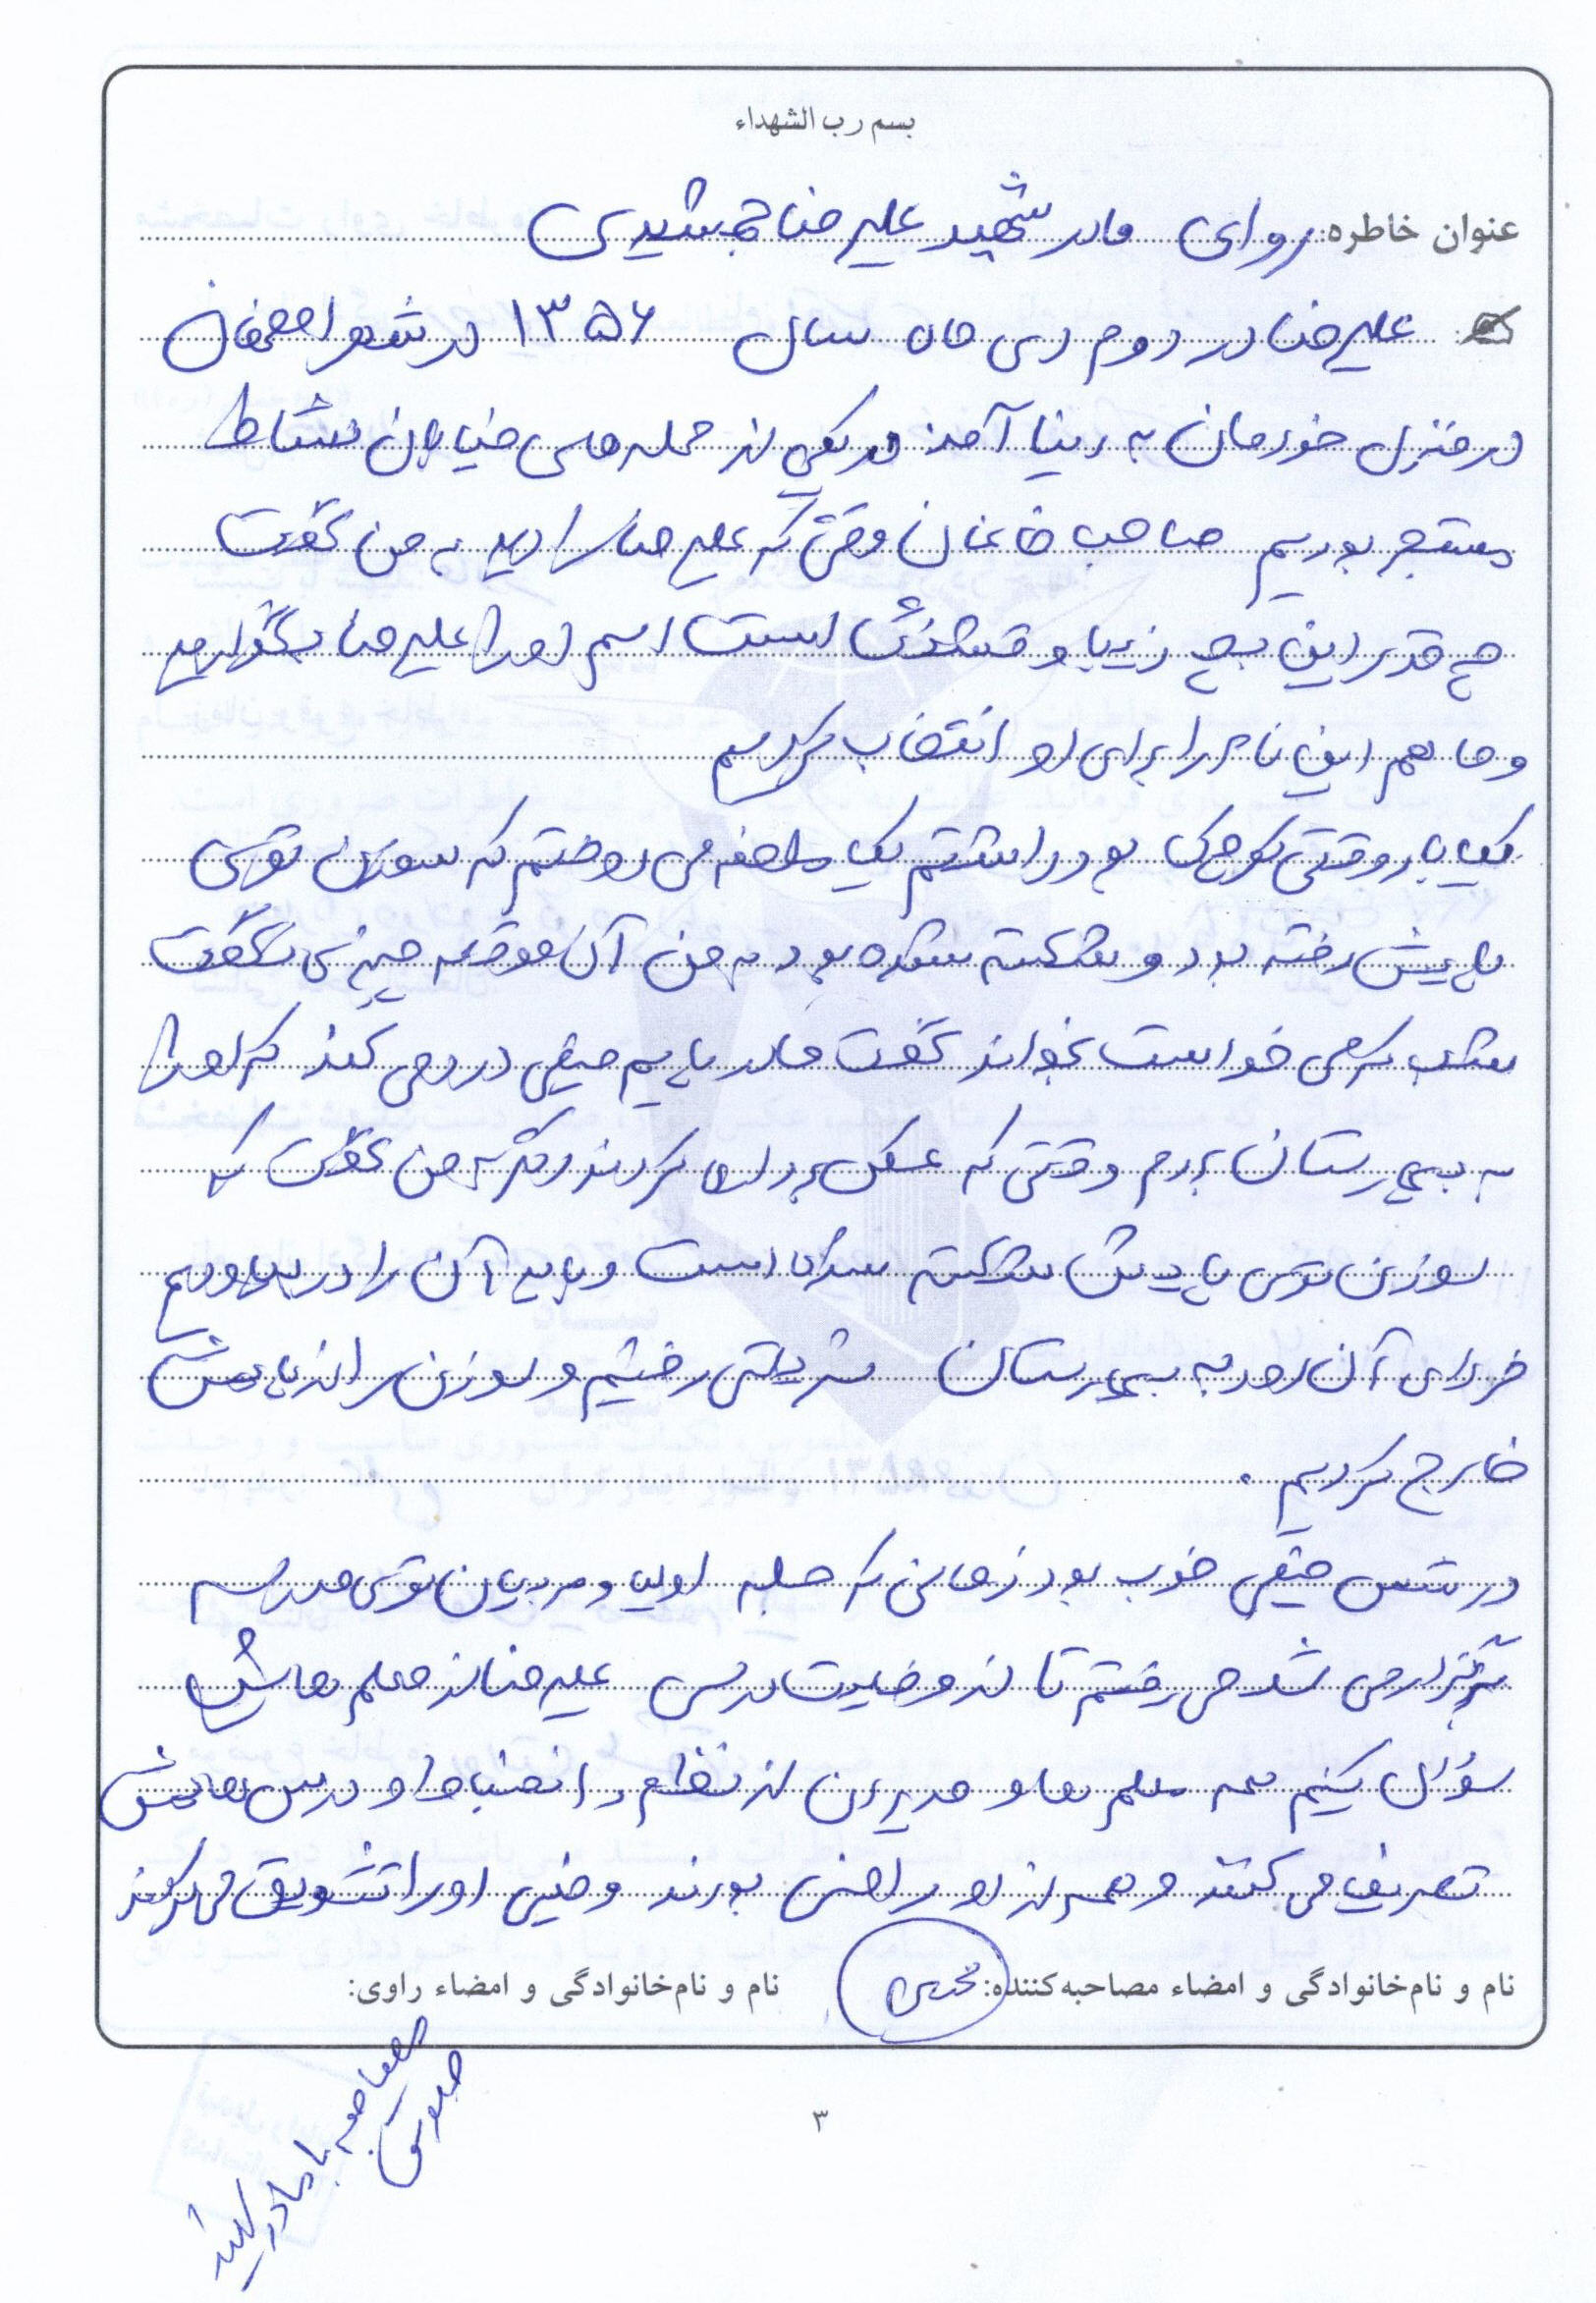 بسم رب الشهداء
عنوان خاطره: روای مادر شهید علیرضا جمشیدی
علیرضا در دوم دی ماه سال ۱۳۵۶ در شهر اصفهان
در منزل خودمان به دنیا آمد در یکی از محله های خیابان نشاط
مستجر بودیم صاحب خانمان وقتی که علیرضا را دید به من گفت
چه قدر این بچه زیبا و قشنگ است اسم او را علیرضا بگذارید
و ما هم این نام را برای او انتخاب کردیم
یک بار وقتی کوچک بود داشتم یک ملحفه می دوختم که سوزن توی
پایش رفته بود و شکسته شده بود به من آن موقعه چیزی نگفت
شب که می خواست بخوابد گفت مادر پایم خیلی درد می کند که او را
به بیمارستان بردم وقتی که عکس برداری کردند دکتر به من گفت که
سوزن توی پایش شکسته شده است و باید آن را در بیاوریم
فردای آن روز به بیمارستان شریعتی رفتیم و سوزن را از پایش
خارج کردیم .
درسش خیلی خوب بود زمانی که جلسه اولیا و مربیان توی مدرسه
برگزار می شد می رفتم تا از وضعیت درسی علیرضا از معلم هایش
سؤال کنیم همه معلم ها و مدیران از نظم و انضباط او درس هایش
تعریف می کنند و همه از او راضی بودند و خیلی او را تشویق می کردند
نام و نام‌خانوادگی و امضاء مصاحبه‌کننده: نام و نام‌خانوادگی و امضاء راوی:
مصاحبه با مادر شهید
۳